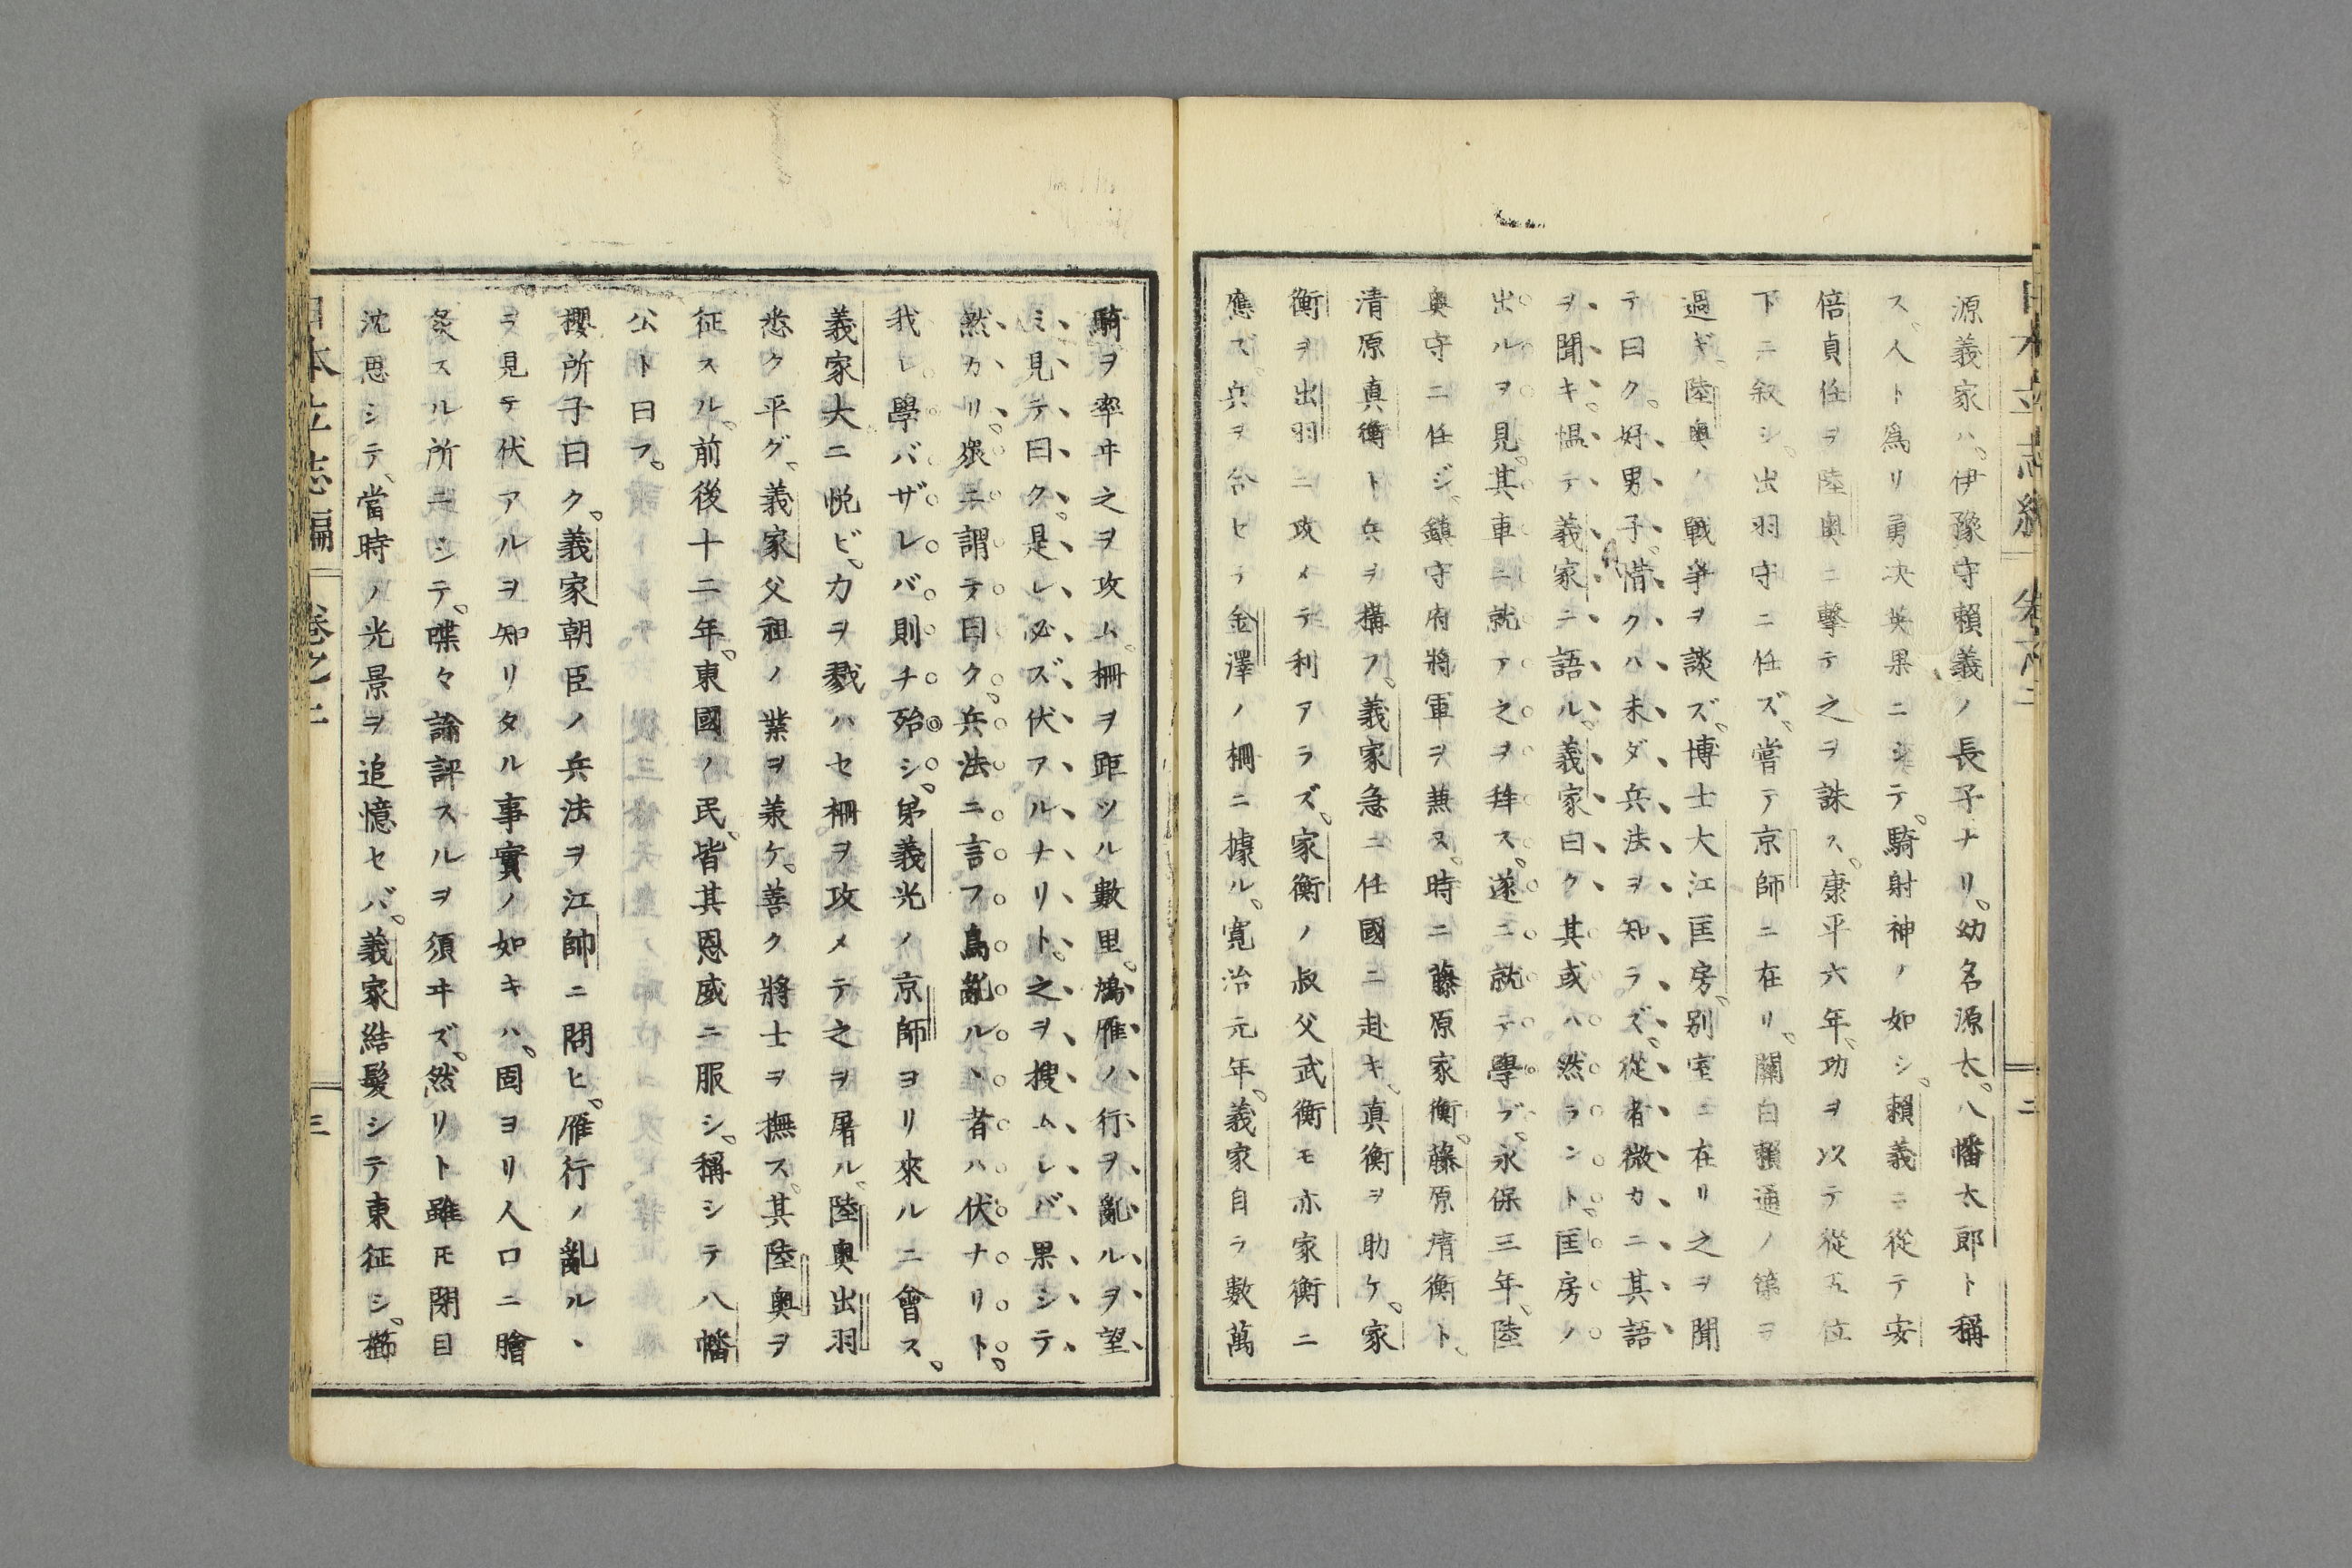 源義家ハ。伊豫守頼義ノ長子ナリ。幼名源太。八幡太郎ト稱
ス。人ト為リ勇决英果ニシテ。騎射神ノ如シ。頼義ニ從テ安
倍貞任ヲ陸奥ニ擊テ之ヲ誅ス。康平六年。功ヲ以テ從五位
下ニ叙シ。出羽守ニ任ズ。嘗テ京師ニ在リ。關白頼通ノ第ヲ
過ギ。陸奥ノ戰爭ヲ談ズ。博士大江匡房。别室ニ在リ之ヲ聞
テ曰ク。好男子。惜クハ未ダ兵法ヲ知ラズ。從者微カニ其語
ヲ聞キ。慍テ義家ニ語ル。義家曰ク其或ハ然ラント。匡房ノ
出ルヲ見。其車ニ就テ之ヲ拜ス。遂ニ就テ學ブ。永保三年。陸
奥守ニ任ジ。鎮守府將軍ヲ兼ヌ。時ニ藤原家衡。藤原清衡ト。
清原真衡ト兵ヲ構フ。義家急ニ任國ニ赴キ。真衡ヲ助ケ。家
衡ヲ出羽ニ攻メテ利アラズ。家衡ノ叔父武衡モ亦家衡ニ
應ズ。兵ヲ合セテ金澤ノ柵ニ據ル。寛治元年。義家自ラ數萬
騎ヲ率ヰ之ヲ攻ム。柵ヲ距ツル數里。鴻雁ノ行ヲ亂ルヲ望
ミ見テ曰ク。是レ必ズ伏アルナリト。之ヲ搜ムレバ果シテ
然カリ。衆ニ謂テ曰ク。兵法ニ言フ鳥亂ルヽ者ハ伏ナリト。
我レ學バザレバ則チ殆シ。弟義光ノ京師ヨリ來ルニ會ス。
義家大ニ悦ビ。力ヲ戮ハセ柵ヲ攻メテ之ヲ屠ル。陸奥出羽
悉ク平グ。義家父祖ノ業ヲ兼ケ。善ク將士ヲ撫ス。其陸奥ヲ
征スル。前後十二年。東國ノ民。皆其恩威ニ服シ。稱シテ八幡
公ト曰フ。
櫻所子曰ク。義家朝臣ノ兵法ヲ江帥ニ問ヒ。雁行ノ亂ルヽ
ヲ見テ伏アルヲ知リタル事實ノ如キハ。固ヨリ人口ニ膾
炙スル所ニシテ。喋々論評スルヲ須ヰズ。然リト雖モ閉目
沈思シテ。當時ノ光景ヲ追憶セバ。義家結髮シテ東征シ。櫛
日本立志編 卷之二 三